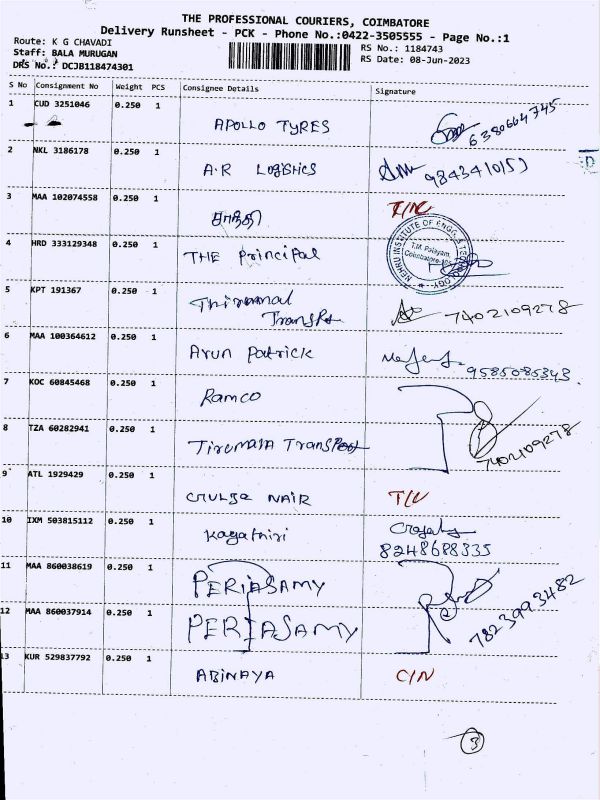 THE PROFESSIONAL COURIERS, COIMBATORE
Delivery Runsheet - PCK - Phone No.:0422-3505555 - Page No.:1
Route: K G CHAVADI
RS No.: 1184743
Staff: BALA MURUGAN
RS Date: 08-Jun-2023
DRS No.: DCJB118474301
S No Consignment No Weight PCS Consignee Details Signature
1 CUD 3251046 0.250 1 APOLLO TYRES 6380664745
2 NKL 3186178 0.250 1 A.R Logistics
3 MAA 102074558 0.250 1 சாந்தி
4 HRD 333129348 0.250 1 THE Principal
NEHRU INSTITUTE OF ENGG & TECHNOLOGY
T.M. Palayam,
Coimbatore-105
5 KPT 191367 0.250 1 Thirumal
Transpt 7402109278
6 MAA 100364612 0.250 1 Arun Patrick 9585085343.
7 KOC 60845468 0.250 1 Ramco
8 TZA 60282941 0.250 1 Tirumala Transport 7402109278
9 ATL 1929429 0.250 1 NAIR
10 IXM 503815112 0.250 1 Kayathiri
8248688335
11 MAA 860038619 0.250 1 PERIASAMY
12 MAA 860037914 0.250 1 PERIASAMY 7823993482
13 KUR 529837792 0.250 1 ABINAYA C/N
3